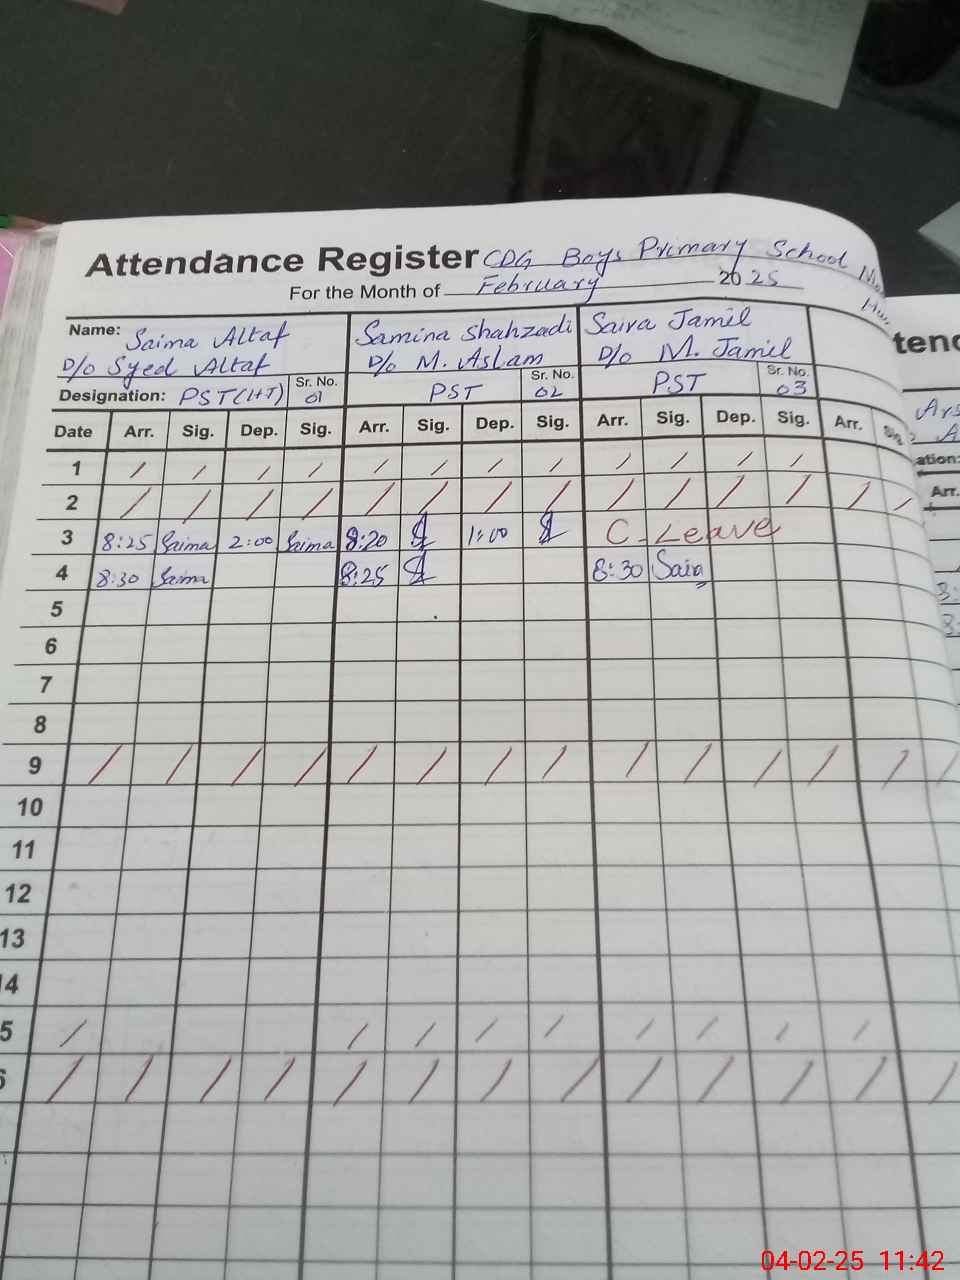 Attendance Register CDG Boys Primary School
For the Month of February 2025
Name: Saima Altaf Samina Shahzadi Saira Jamil
D/o Syed Altaf D/o M. Aslam D/o M. Jamil
Designation: PST(HT) Sr. No. 01 PST Sr. No. 02 PST Sr. No. 03
Date Arr. Sig. Dep. Sig. Arr. Sig. Dep. Sig. Arr. Sig. Dep. Sig. Arr. Sig.
1 / / / / / / / / / / / /
2 / / / / / / / / / / / / / /
3 8:25 Saima 2:00 Saima 8:20 1:00 C. Leave
4 8:30 Saima 8:25 8:30 Saira
5
6
7
8
9 / / / / / / / / / / / / / /
10
11
12
13
14
5 / / / / / / / / /
6 / / / / / / / / / / / / / /
tenc
ation:
Arr.
04-02-25 11:42